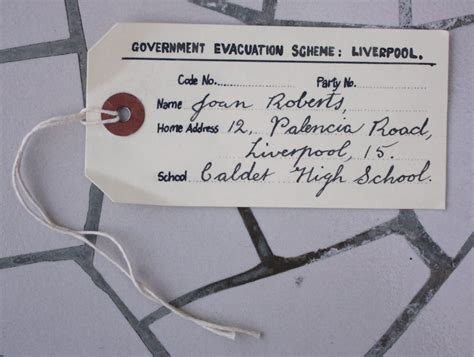 GOVERNMENT EVACUATION SCHEME: LIVERPOOL.
Code No. Party No.
Name Joan Roberts,
Home Address 12, Palencia Road,
Liverpool, 15.
School Calder High School.